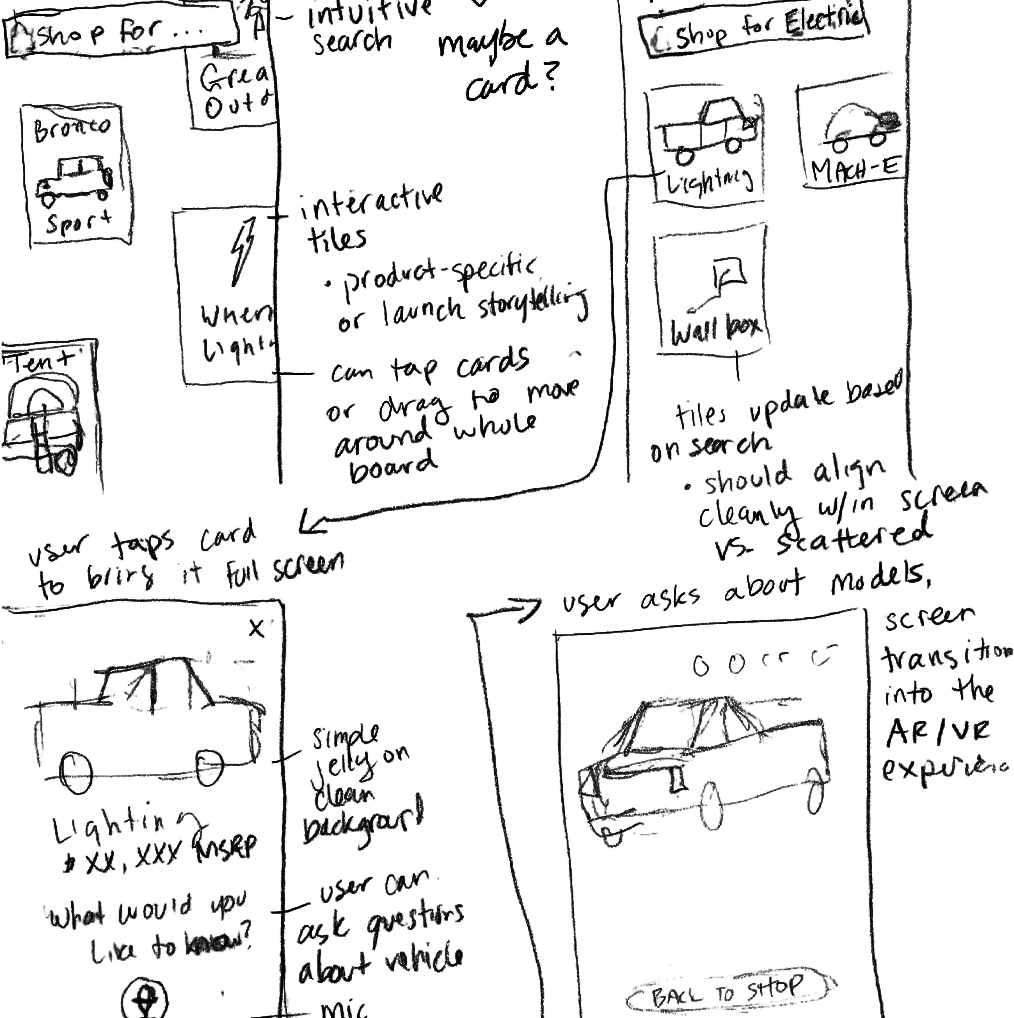 Shop for ...
Grea
Outd
Bronco
Sport
When
Light
Tent
intuitive
search
maybe a
card?
interactive
tiles
• product-specific
or launch storytelling
can tap cards
or drag to move
around whole
board
Shop for Electric
Lightning
MACH-E
Wall box
tiles update based
on search
• should align
cleanly w/in screen
vs. scattered
user taps card
to bring it full screen
X
Lighting
$XX,XXX MSRP
What would you
like to know?
simple
jelly on
clean
background
user can
ask questions
about vehicle
mic
user asks about models,
screen
transition
into the
AR/VR
experience
BACK TO SHOP